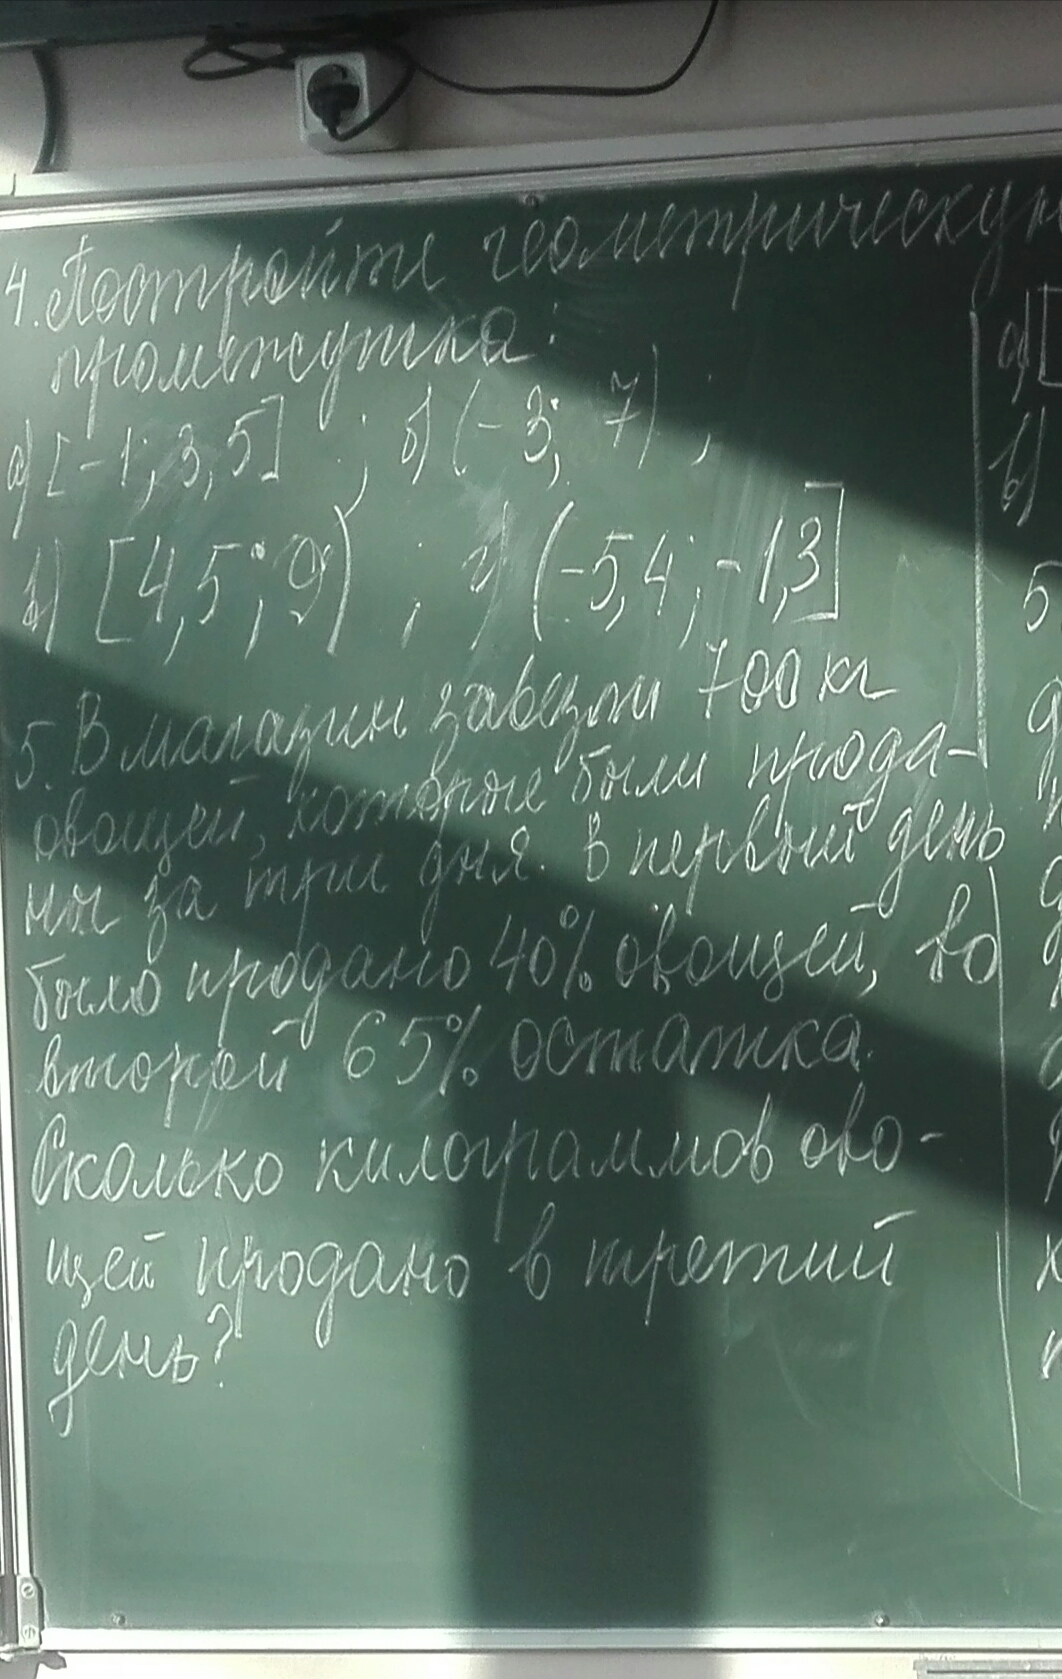 4. Постройте геометрическу
промежутка:
а) [-1; 3,5] ; б) (-3; 7) ;
в) [4,5; 9) ; г) (-5,4; -1,3]
5. В магазин завезли 700 кг
овощей, которые были прода-
ны за три дня. В первый день
было продано 40% овощей, во
второй 65% остатка.
Сколько килограммов ово-
щей продано в третий
день?
а) [
в)
5